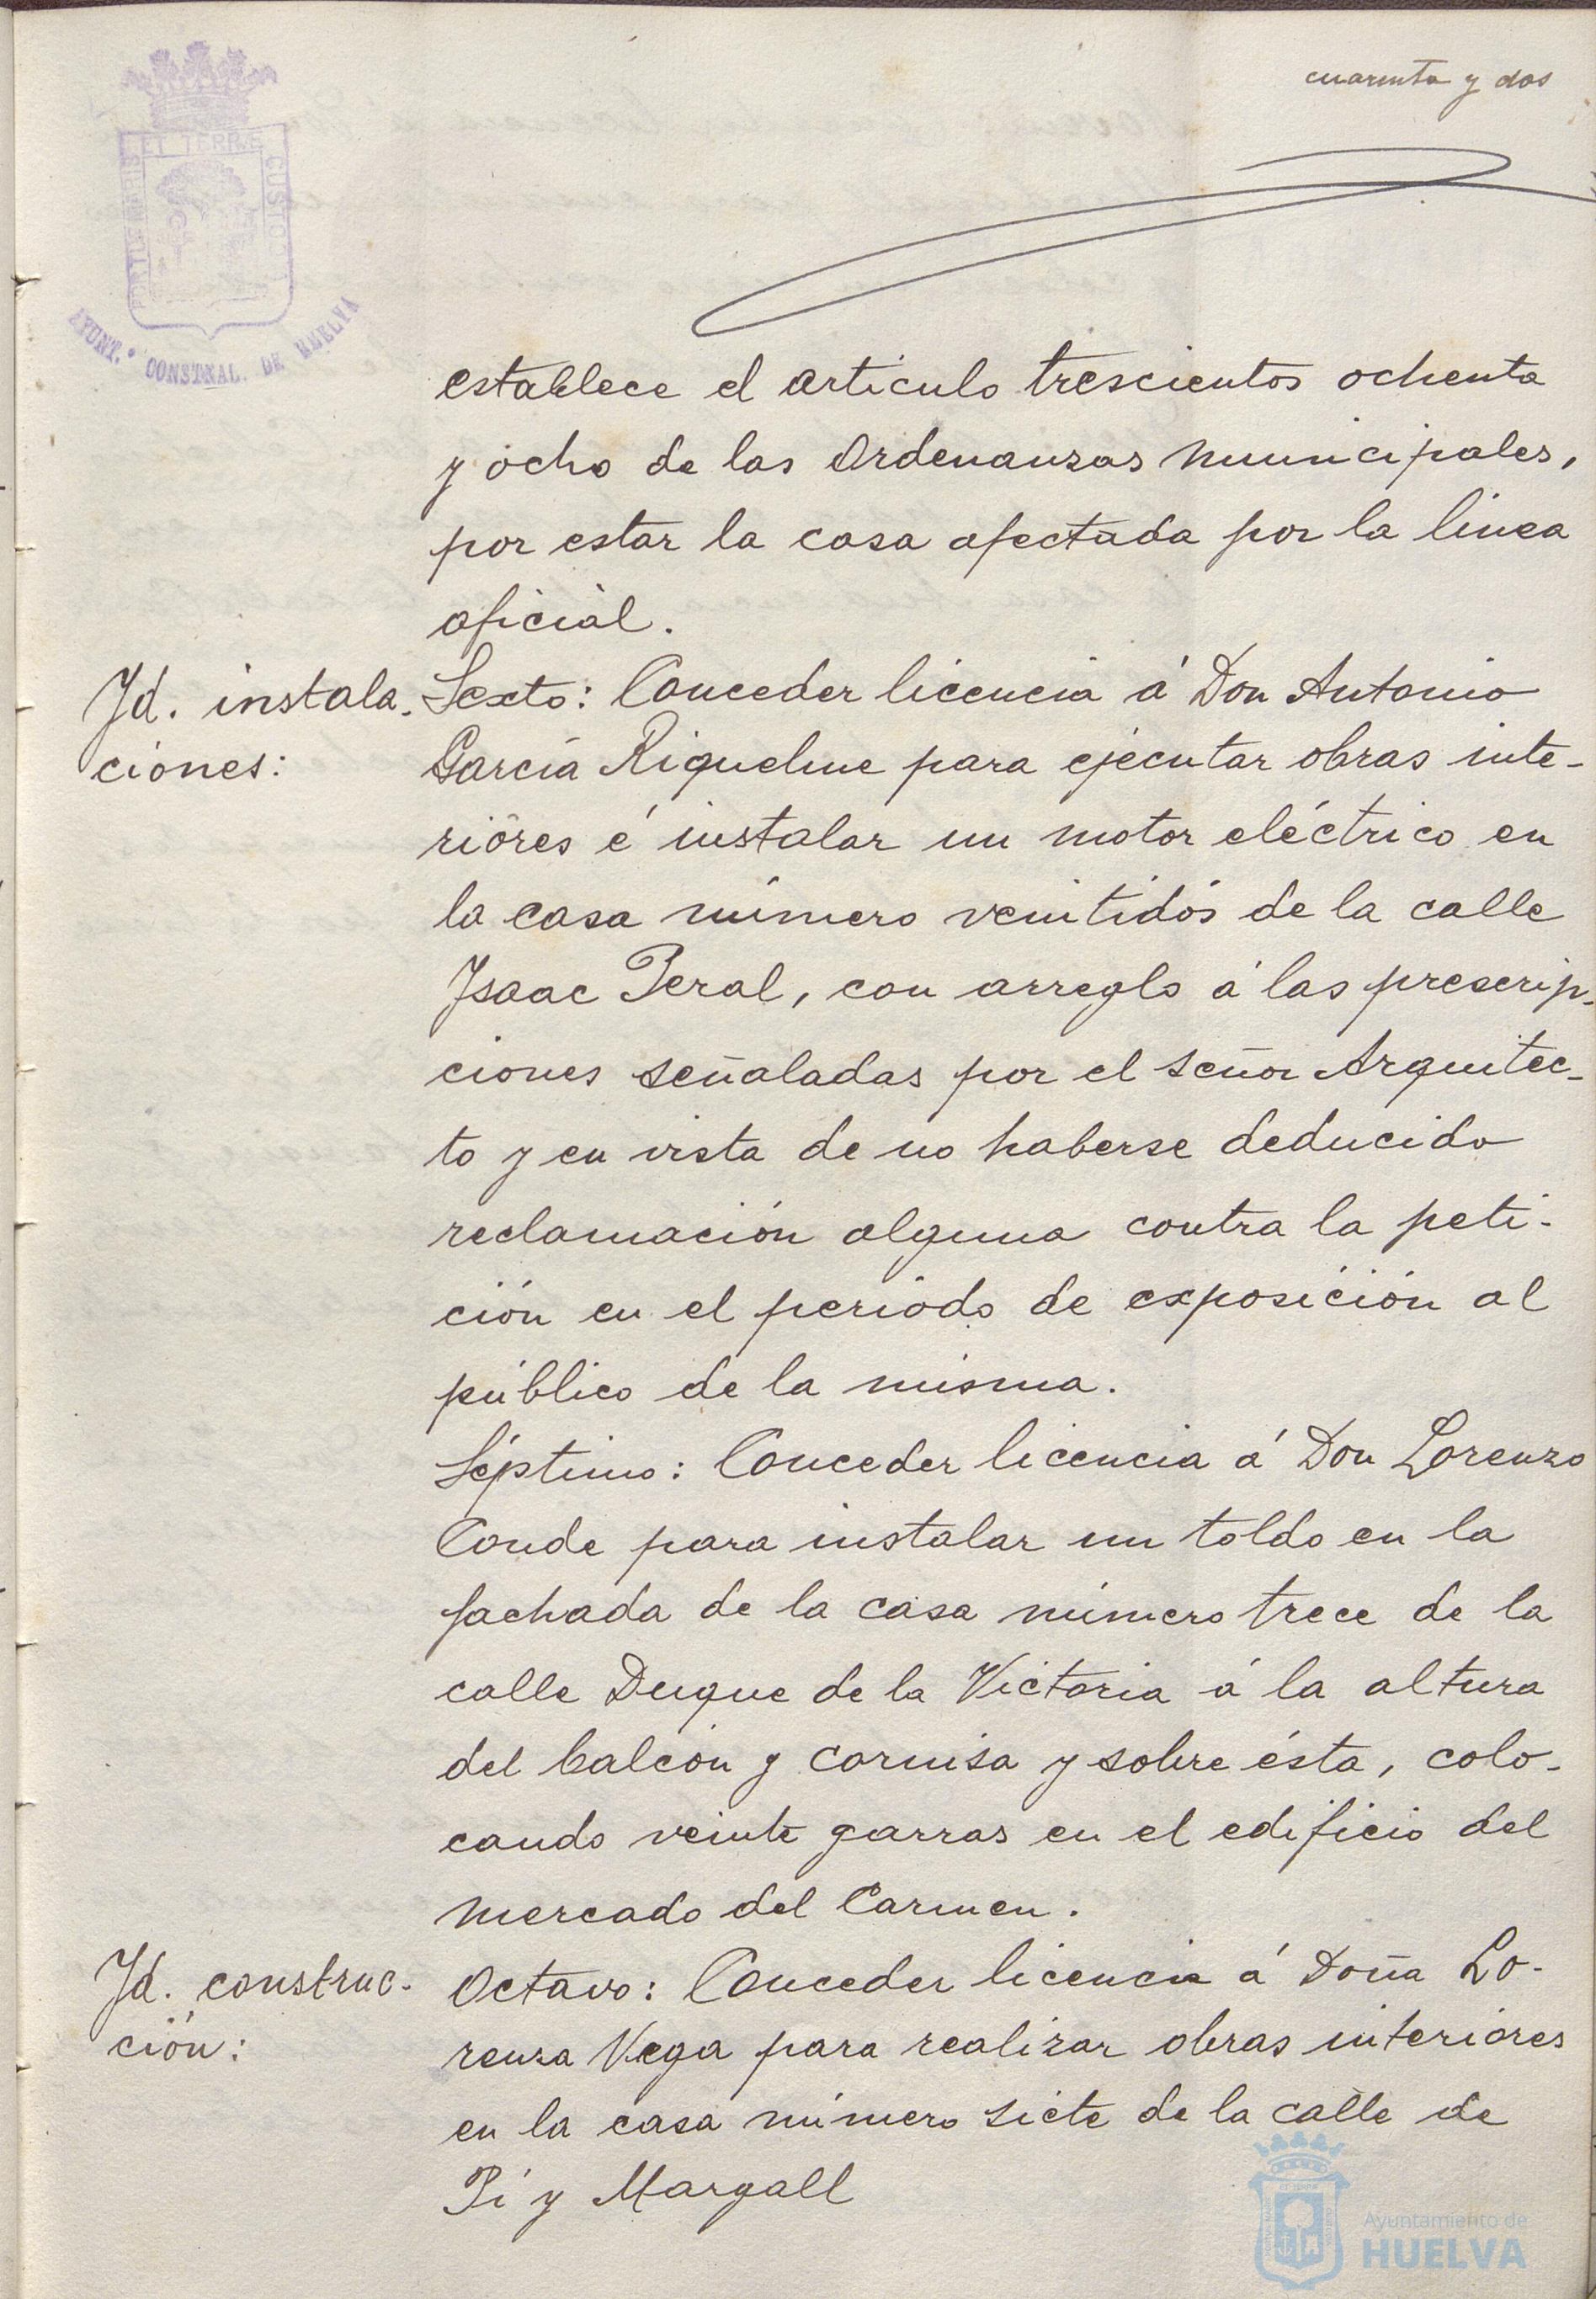 cuarenta y dos
ET TERRAE CUSTO
AYUNT.º CONSTNAL. DE HUELVA
establece el articulo trescientos ochenta
y ocho de las Ordenanzas municipales,
por estar la casa afectada por la linea
oficial.
Id. instala-
ciones:
Sexto: Conceder licencia á Don Antonio
García Riquelme para ejecutar obras inte-
riores é instalar un motor eléctrico en
la casa número veintidós de la calle
Isaac Peral, con arreglo á las prescrip-
ciones señaladas por el señor Arquitec-
to y en vista de no haberse deducido
reclamación alguna contra la peti-
ción en el periódo de exposición al
público de la misma.
Séptimo: Conceder licencia á Don Lorenzo
Conde para instalar un toldo en la
fachada de la casa número trece de la
calle Duque de la Victoria á la altura
del balcón y cornisa y sobre ésta, colo-
cando veinte garras en el edificio del
mercado del Carmen.
Id. construc-
ción:
Octavo: Conceder licencia á Doña Lo-
renza Vega para realizar obras interiores
en la casa número siete de la calle de
Pí y Margall
Ayuntamiento de
HUELVA